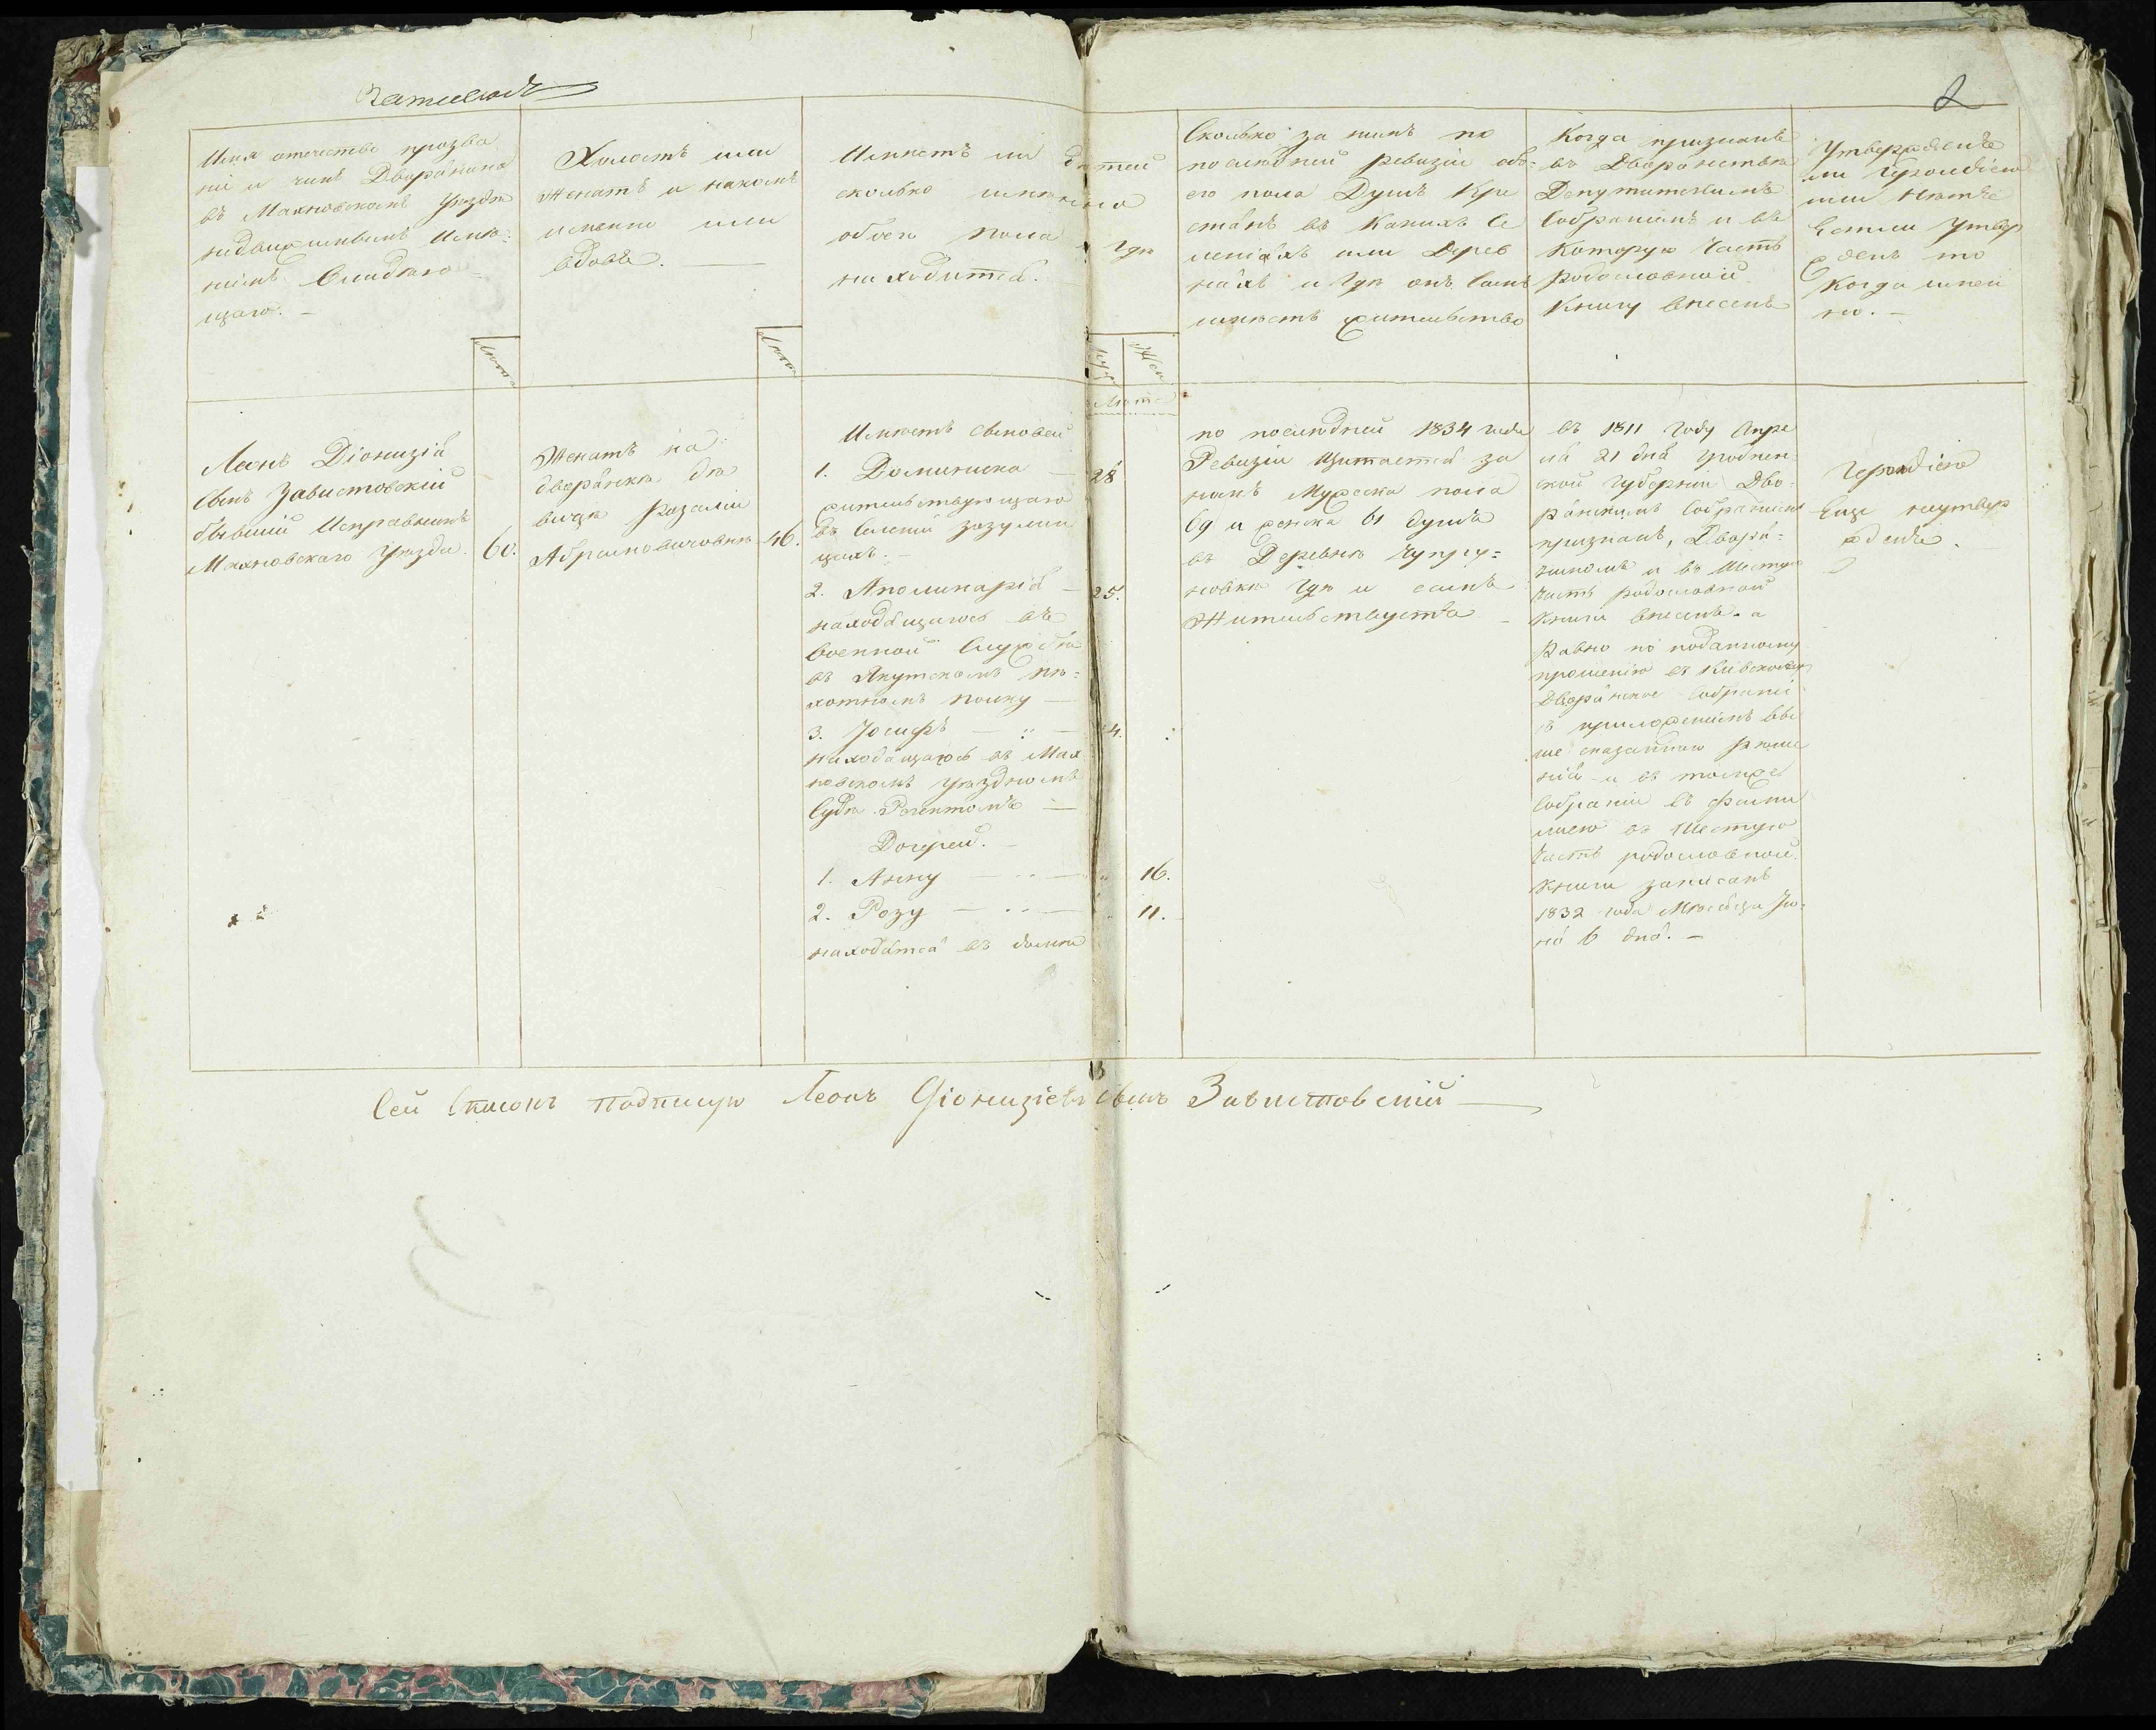 2
Имя отечество прозва
ніе и чинъ Дворянина
въ Махновскомъ уѣзде
недвижимымъ имѣ-
ніемъ Владѣю
щаго. -
Лѣта
Холостъ или
Женатъ и накомъ
именно или
вдовъ. -
Лѣта
Имѣетъ ли дѣтей
сколько имянно
обоего пола и гдѣ
находится.
Муж
Жен
Лѣта
Сколько за нимъ по
последней ревизіи обо-
его пола Душъ Кре
стянъ въ Какихъ Се
леніяхъ или Дерев
няхъ и гдѣ онъ Самъ
имѣетъ жительство
Когда признанъ
въ Дворянствѣ
Депутатскимъ
Собраніемъ и въ
Которую Часть
Родословной
Книги внесенъ
Утвержденъ
ли Герольдіею
или Нетъ
Естли Утвер
жденъ то
Когда имен
но. -
Леонъ Діонизія
Сынъ Завистовскій
бывшій Исправникъ
Махновскаго уѣзда.
60.
Женатъ на
дворянкѣ Дѣ
вицѣ Розаліи
Абрамовичовнѣ
46.
Имѣетъ Сыновей
1. Доминика - 28
жительствующаго
въ Селеніи Зозулин
цахъ. -
2. Аполинарія - 25.
находящагось въ
военной Службѣ
въ Якутскомъ пѣ-
хотномъ полку -
3. Іосифъ - 24.
находящагось въ Мах
новскомъ уѣздномъ
Судѣ Регентомъ -
Дочерей. -
1. Анну - 16.
2. Розу - 11.
находятся въ домѣ
по последней 1834 года
Ревизіи Щитается за
нимъ Мужска пола
69 и женска 61 душъ
въ Деревнѣ Чупру-
новкѣ гдѣ и самъ
Жительствуетъ -
въ 1811 году Апре
ля 21 дня Гроднен
ской Губерніи Дво-
рянскимъ Собраніемъ
признанъ, Дворя-
ниномъ и въ Шестую
Часть родословной
Книги внесенъ. а
Равно по поданному
прошенію въ Кіевское
Дворянское Собраніе
съ приложеніемъ вы
ше сказанного Рѣше
нія и въ томже
Собраніи съ фами
лиею въ Шестую
Часть родословной
Книги записанъ
1832 года Мѣсяца Ію-
ня 6 дня. -
Герольдіею
Еще неутвер
жденъ.
Сей Списокъ подписую Леонъ Діонизіевъ Сынъ Завистовскій